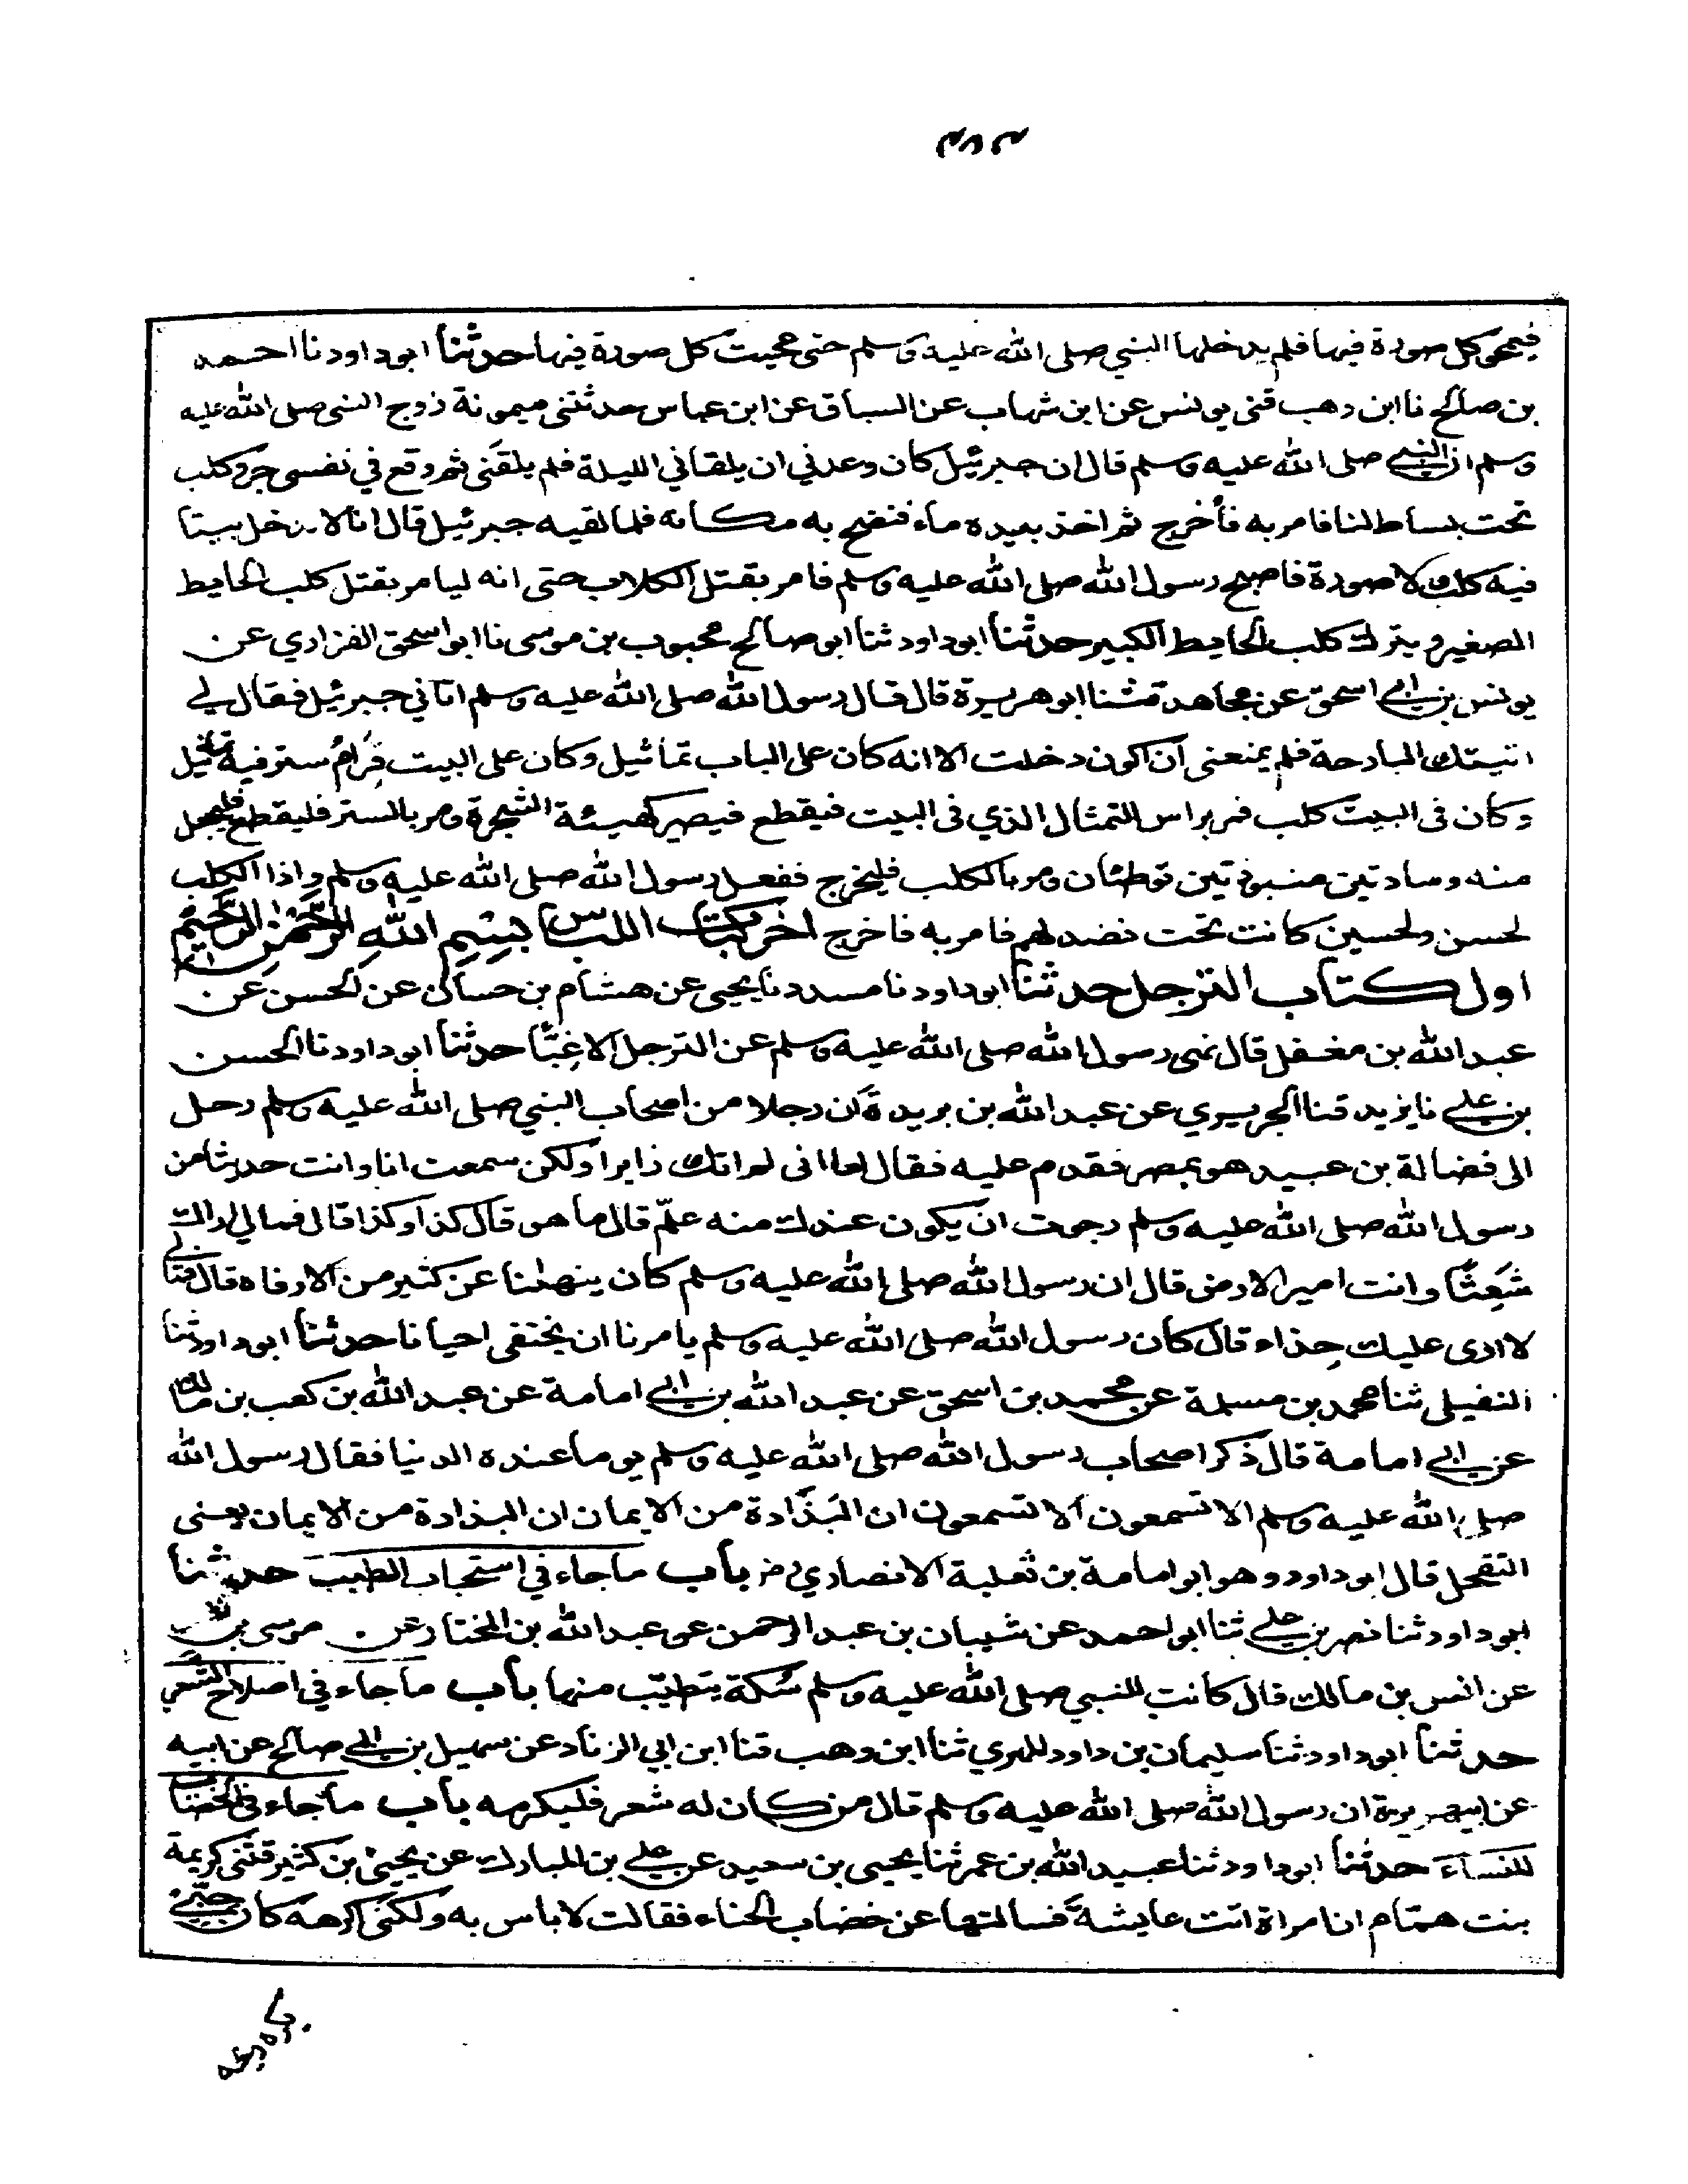 فيمحو كل صورة فيها فلم يدخلها النبي صلى الله عليه وسلم حتى محيت كل صورة فيها حدثنا ابو داود نا احمد
بن صالح نا ابن وهب قثنى يونس عن ابن شهاب عن السباق عن ابن عباس حدثتنى ميمونة زوج النبى صلى الله عليه
وسلم ان النبي صلى الله عليه وسلم قال ان جبرئيل كان وعدني ان يلقاني الليلة فلم يلقنى ثم وقع في نفسى جرو كلب
تحت بساط لنا فامر به فأخرج ثم اخذ بيده ماء فنضح به مكانه فلما لقيه جبرئيل قال انا لا ندخل بيتا
فيه كلب ولا صورة فاصبح رسول الله صلى الله عليه وسلم فامر بقتل الكلاب حتى انه ليامر بقتل كلب الحايط
الصغير ويترك كلب الحايط الكبير حدثنا ابو داود ثنا ابو صالح محبوب بن موسى نا ابو اسحق الفزاري عن
يونس بن ابي اسحق عن مجاهد قثنا ابو هريرة قال قال رسول الله صلى الله عليه وسلم اتاني جبرئيل فقال لي
اتيتك البارحة فلم يمنعنى ان اكون دخلت الا انه كان على الباب تماثيل وكان على البيت قرام ستر فيه تماثيل
وكان فى البيت كلب فمر براس التمثال الذي فى البيت فيقطع فيصير كهيئة الشجرة ومر بالستر فليقطع فليجعل
منه وسادتين منبوذتين توطئان ومر بالكلب فليخرج ففعل رسول الله صلى الله عليه وسلم واذا الكلب
لحسن ولحسين كانت تحت نضد لهم فامر به فاخرج اخر كتاب اللباس بسم الله الرحمن الرحيم
اول كتاب الترجل حدثنا ابو داود نا مسدد نا يحيى عن هشام بن حسان عن الحسن عن
عبد الله بن مغفل قال نهى رسول الله صلى الله عليه وسلم عن الترجل الا غبا حدثنا ابو داود نا الحسن
بن علي نا يزيد قثنا الجريري عن عبد الله بن بريدة ان رجلا من اصحاب النبي صلى الله عليه وسلم رحل
الى فضالة بن عبيد هو بمصر فقدم عليه فقال اما انى لم اتك زايرا ولكن سمعت انا وانت حديثا من
رسول الله صلى الله عليه وسلم رجوت ان يكون عندك منه علم قال ما هو قال كذا وكذا قال فمالي اراك
شعثا وانت امير الارض قال ان رسول الله صلى الله عليه وسلم كان ينهانا عن كثير من الارفاه قال فمالي
لا ارى عليك حذاء قال كان رسول الله صلى الله عليه وسلم يامرنا ان نحتفى احيانا حدثنا ابو داود ثنا
النفيلى ثنا محمد بن مسلمة عن محمد بن اسحق عن عبد الله بن ابي امامة عن عبد الله بن كعب بن مالك
عن ابي امامة قال ذكر اصحاب رسول الله صلى الله عليه وسلم يوما عنده الدنيا فقال رسول الله
صلى الله عليه وسلم الا تسمعون الا تسمعون ان البذاذة من الايمان ان البذاذة من الايمان يعنى
التقحل قال ابو داود وهو ابو امامة بن ثعلبة الانصاري باب ما جاء في استحباب الطيب حدثنا
ابو داود ثنا نصر بن علي ثنا ابو احمد عن شيبان بن عبد الرحمن عن عبد الله بن المختار عن موسى بن انس
عن انس بن مالك قال كانت للنبي صلى الله عليه وسلم سكة يتطيب منها باب ما جاء في اصلاح الشعر
حدثنا ابو داود ثنا سليمان بن داود المهري ثنا ابن وهب قثنا ابن ابي الزناد عن سهيل بن ابي صالح عن ابيه
عن ابي هريرة ان رسول الله صلى الله عليه وسلم قال من كان له شعر فليكرمه باب ما جاء في الخضاب
للنساء حدثنا ابو داود ثنا عبيد الله بن عمر ثنا يحيى بن سعيد عن علي بن المبارك عن يحيى بن كثير قثتنى كريمة
بنت همام ان امراة اتت عايشة فسالتها عن خضاب الحناء فقالت لا باس به ولكنى اكرهه كان حبيبي